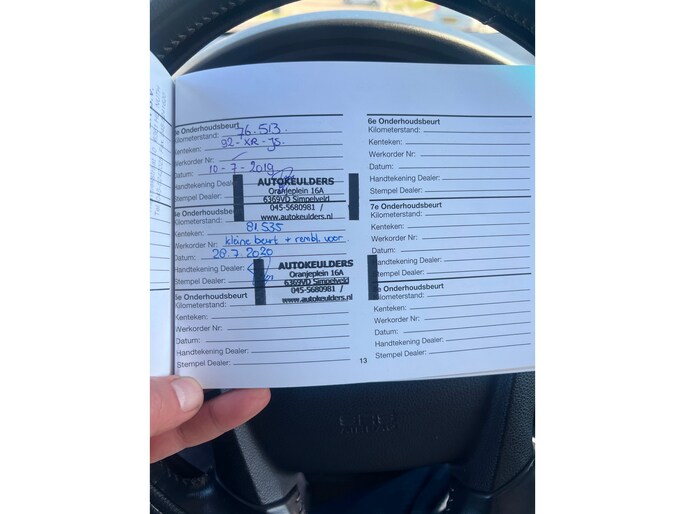 e Onderhoudsbeurt
Kilometerstand: 76.513
Kenteken: 92-XR-JS
Werkorder Nr:
Datum: 10-7-2019
Handtekening Deale
Stempel Dealer:
AUTOKEULDERS
Oranjeplein 16A
6369VD Simpelveld
045-5680981 /
www.autokeulders.nl
e Onderhoudsbeurt
Kilometerstand:
Kenteken: 81.535
Werkorder Nr: kleine beurt + rembl. voor
Datum: 28.7.2020
Handtekening Dealer:
Stempel Dealer:
AUTOKEULDERS
Oranjeplein 16A
6369VD Simpelveld
045-5680981 /
www.autokeulders.nl
e Onderhoudsbeurt
Kilometerstand:
Kenteken:
Werkorder Nr:
Datum:
Handtekening Dealer:
Stempel Dealer:
6e Onderhoudsbeurt
Kilometerstand:
Kenteken:
Werkorder Nr:
Datum:
Handtekening Dealer:
Stempel Dealer:
7e Onderhoudsbeurt
Kilometerstand:
Kenteken:
Werkorder Nr:
Datum:
andtekening Dealer:
tempel Dealer:
e Onderhoudsbeurt
ilometerstand:
Kenteken:
Werkorder Nr:
Datum:
Handtekening Dealer:
Stempel Dealer:
13